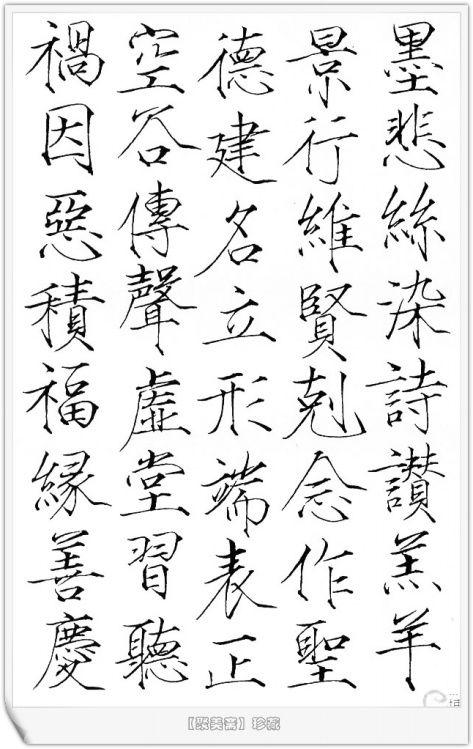 墨悲絲染詩讃羔羊
景行維賢剋念作聖
德建名立形端表正
空谷傳聲虛堂習聽
禍因惡積福緣善慶
【采美斋】珍藏